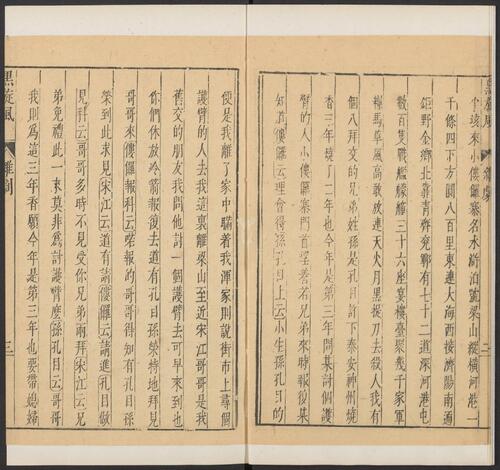 黑旋風 雜劇 二
來小僂儸寨名水滸泊號梁山縱橫河港一
千條四下方圓八百里東連大海西接濟陽南通
鉅野金鄉北靠青齊兗鄆有七十二道深河港屯
數百隻戰艦艨艟三十六座宴樓臺聚幾千家軍
糧馬草風高敢放連天火月黑提刀去殺人我有
個八拜交的兄弟姓孫是孔目許下泰安神州燒
香三年燒了二年也今年是第三年問某討個護
臂的人小僂儸寨門首望着若兄弟來時報復某
知道僂儸云理會得孫孔目上云小生孫孔目的
便是我離了家中瞞着我渾家則說街市上尋個
護臂的人去我這裏離梁山至近宋江哥哥是我
舊交的朋友我問他討一個護臂去可早來到也
你們休放冷箭報復去道有孔目孫榮特地拜見
哥哥來僂儸報科云喏報的哥哥得知有孔目孫
榮到此求見宋江云道有請僂儸云請進孔目做
見科云哥哥多時不見受你兄弟兩拜宋江云兄
弟免禮此一來莫非爲討護臂麽孫孔目云哥哥
我則爲這三年香願今年是第三年也要帶媳婦
黑旋風 雜劇 三